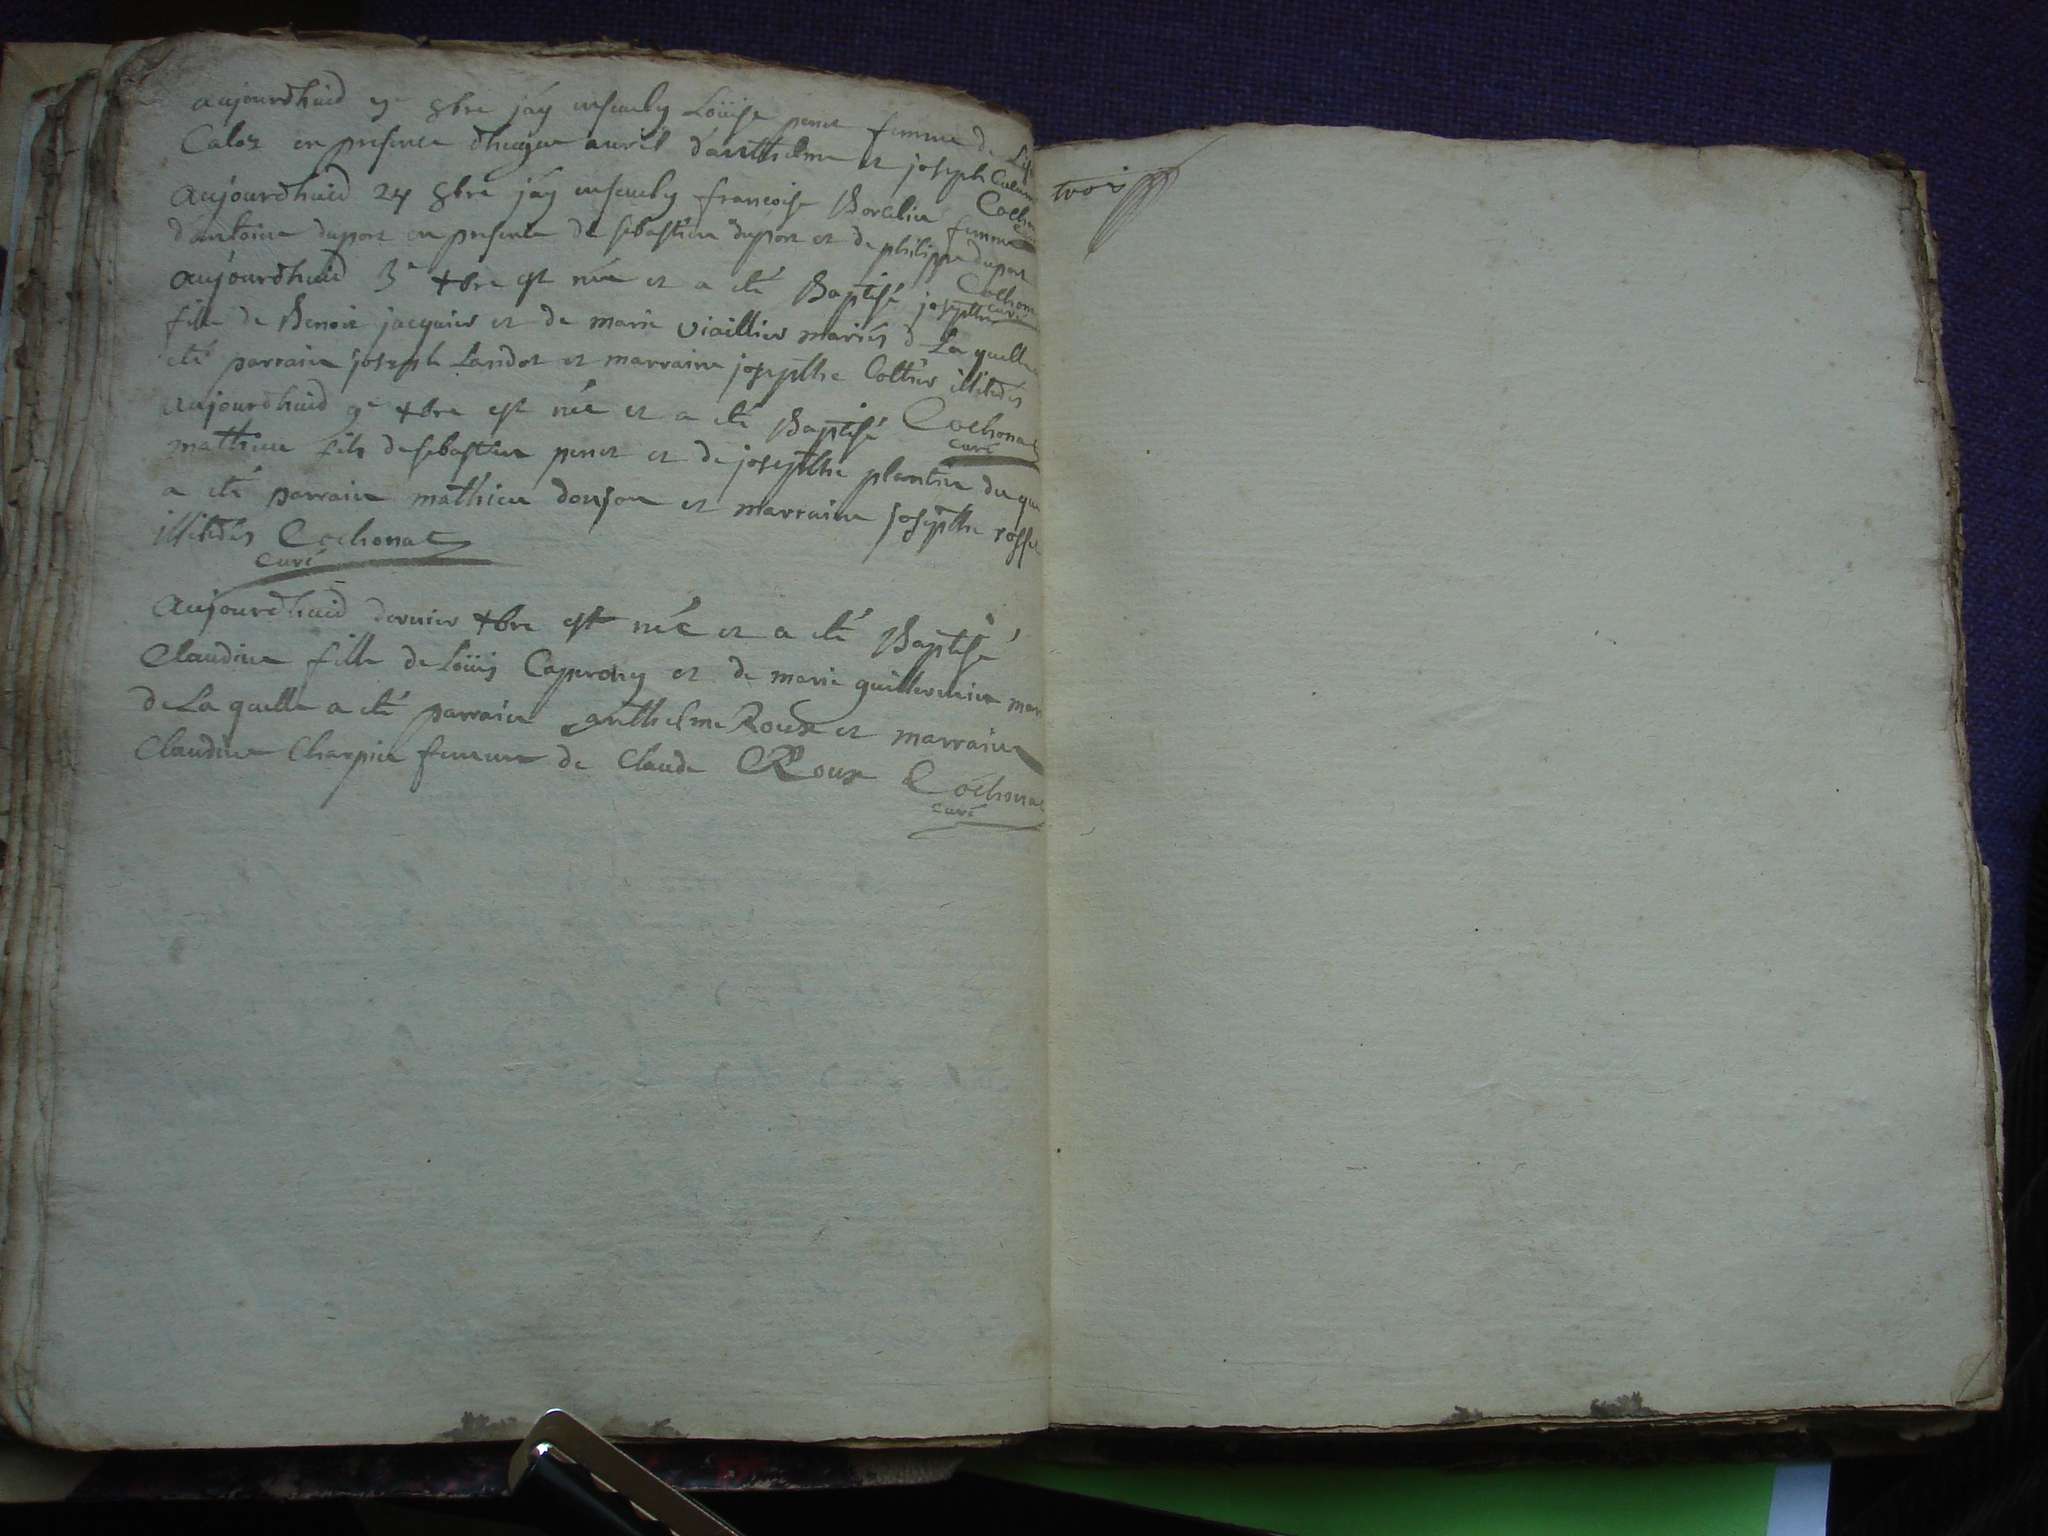 aujourdhuid 9e 8bre jáy ensevely Loüise penet femme de
Caloz en presence dhugue avril d'anthelme et joseph
aujourdhuid 24 8bre jáy ensevely francoise Borelin femme
d'antoine duport en presence de sebastien duport et de philippe duport
Cochona
curé
aujourdhuid 3e xbre est née et a eté Baptisé josepthe
fille de Benoit jacquier et de marie viaillier mariés d La quelle
eté parrain joseph Landot et marraine josepthe Cottier illitedés
Cochonat
curé
aujourdhuid 9e xbre est née et a eté Baptisé
mathieu fils de sebastien penet et de josepthe plantin du
a eté parrain mathieu donjon et marraine josepthe
illitedés Cochonat
curé
aujourdhuid dernier xbre est née et a eté Baptisé
Claudine fille de Loüis Caperony et de marie guillermin
de La quelle a eté parrain anthelme Roux et marraine
Claudine Charpin femme de Claude Roux Cochona
curé
trois